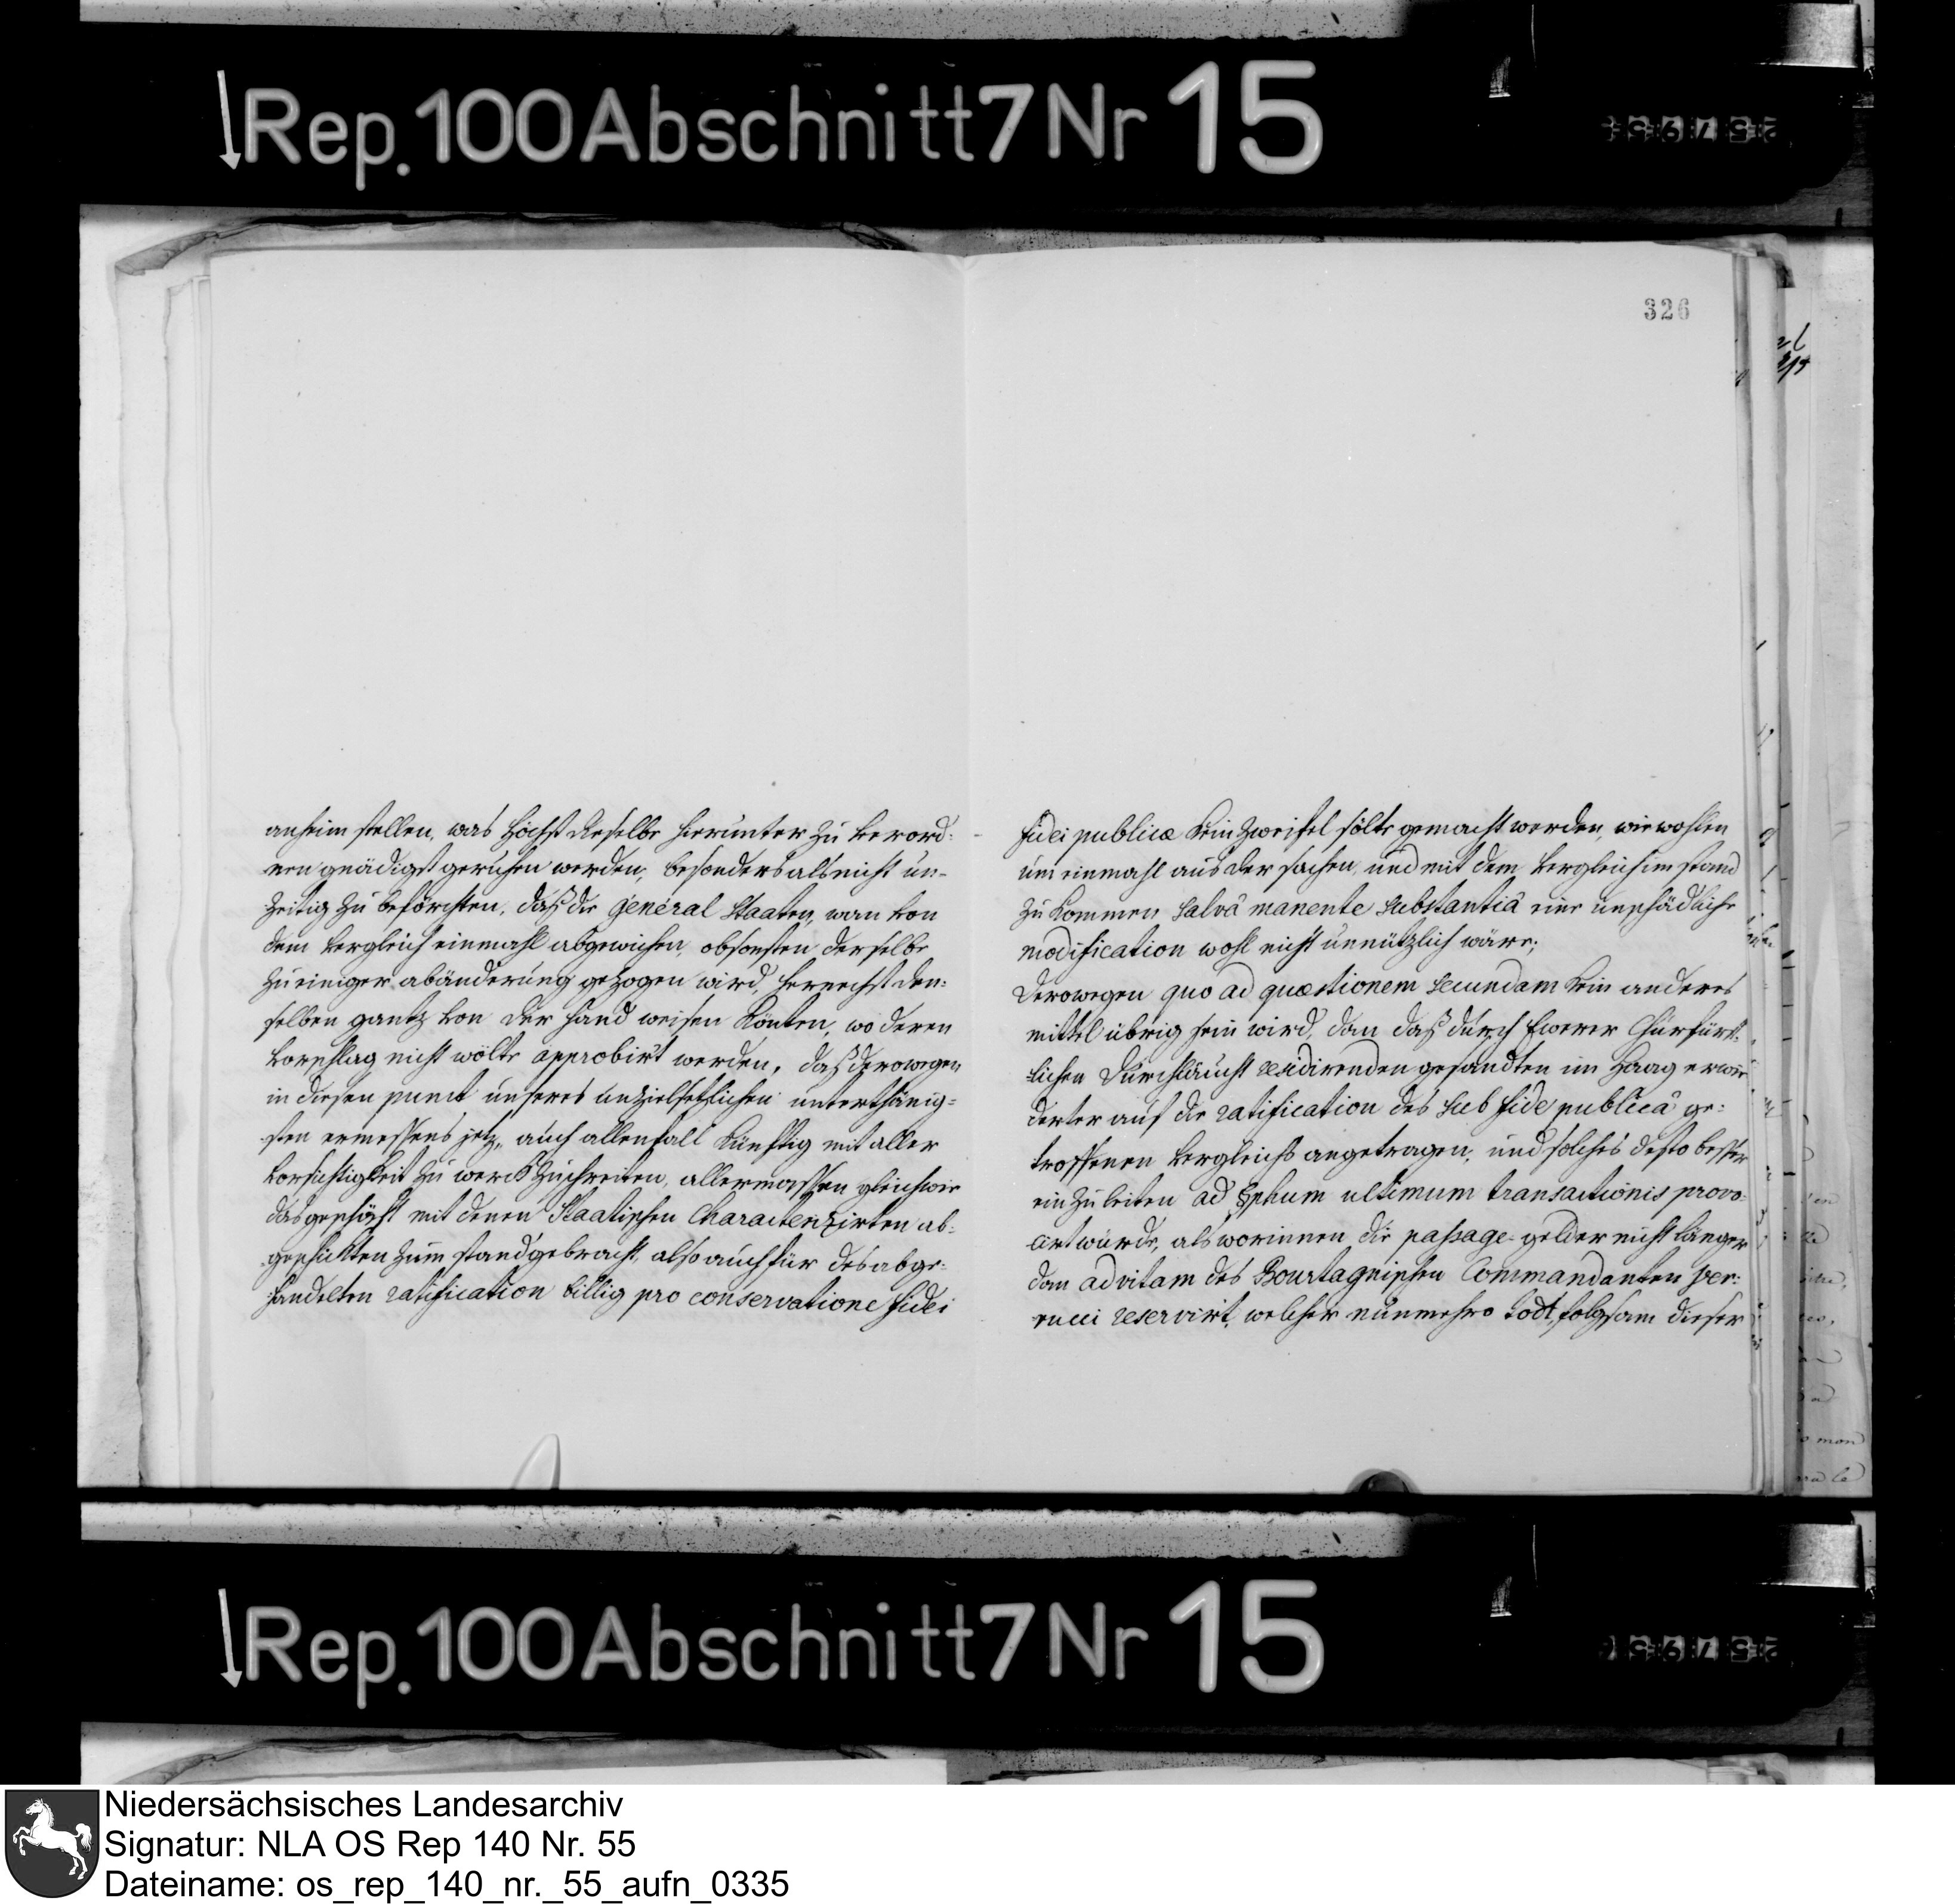 Rep. 100 Abschnitt 7 Nr 15
326
anheim stellen, was höchst dieselbe hierunter zu verord-
nen gnädigst geruhen werden, besonders als nicht un-
zeitig zu beförchten, daß die General Staaten, wan von
dem vergleich einmahl abgewichen, obsonsten derselbe
zu einiger abänderung gezogen wird, hernechst den-
selben gantz von der hand weisen könten, wo deren
vorschlag nicht wölte approbirt werden, daß derowegen
in diesen punct unseres unzielsetzlichen unterthänig-
sten ermessens jetz, auch allenfall künftig mit aller
vorsichtigkeit zu werck zuschreiten, allermassen gleichwie
das geschäft mit denen Staatischen Characterizirten ab-
geschickten zum stand gebracht, also auch für des abge-
handelten ratification billig pro conservatione fidei
fidei publicæ kein zweifel sölte gemacht werden, wie wohlen
um einmahl aus der sachen, und mit dem vergleich im stand
zu kommen salvâ manente substantiâ eine unschädliche
modification wohl nicht unnützlich wäre;
derowegen quo ad quæstionem secundam kein anderes
mittel übrig sein wird, dan daß durch Ewerer Churfürst-
lichen Durchlaucht residirenden gesandten im Haag erwie-
derter auf die ratification des sub fide publicâ ge-
troffenen vergleichs angetragen, und solches desto besser
ein zu leiten ad §phum ultimum transactionis provo-
cirt würde, als worinnen die passage-gelder nicht länger
dan ad vitam des Bourtagnischen Commandanten per-
rucci reservirt, welcher nunmehro todt, folgsam dieser
Rep. 100 Abschnitt 7 Nr 15
Niedersächsisches Landesarchiv
Signatur: NLA OS Rep 140 Nr. 55
Dateiname: os_rep_140_nr._55_aufn_0335